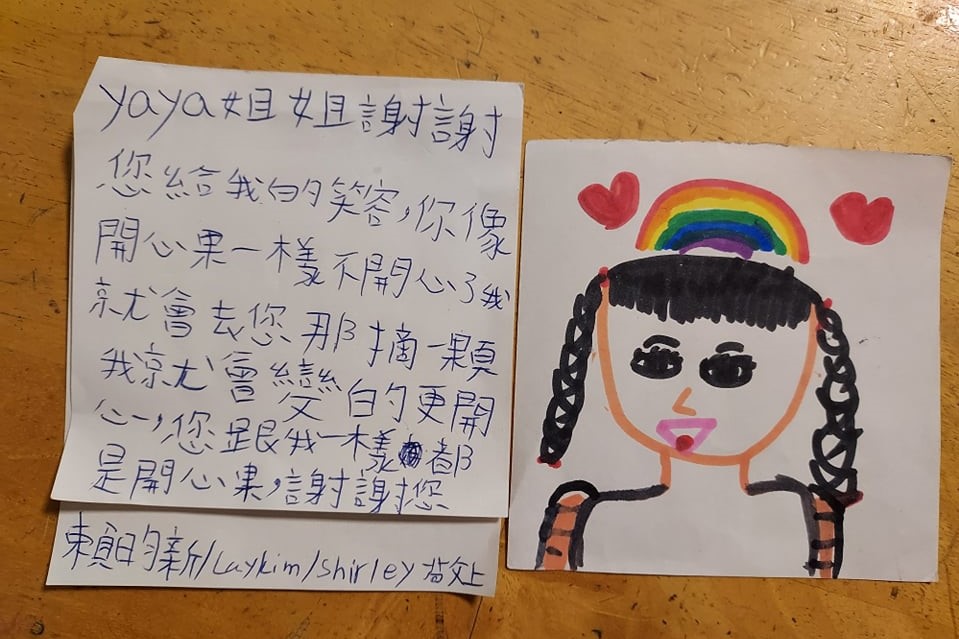 yaya姐姐謝謝
您給我的笑容,你像
開心果一樣不開心了我
就會去您那摘一顆
我就會變的更開
心,您跟我一樣都
是開心果,謝謝您
賴昀新/Laykim/Shirley 敬上